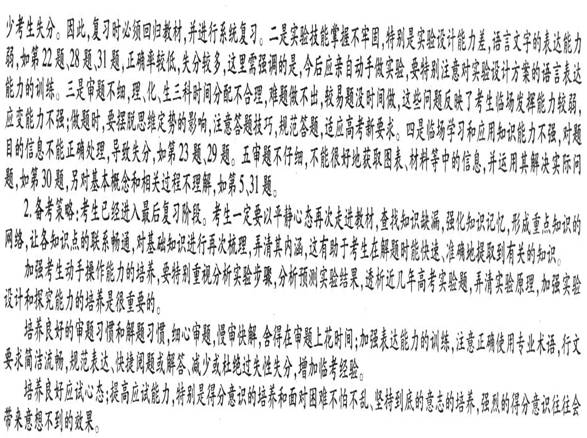 少考生失分。因此,复习时必须回归教材,并进行系统复习。二是实验技能掌握不牢固,特别是实验设计能力差,语言文字的表达能力
弱,如第22题、28题、31题,正确率较低,失分较多,这里需强调的是,今后应亲自动手做实验,要特别注意对实验设计方案的语言表达
能力的训练。三是审题不细,理、化、生三科时间分配不合理,难题做不出,较易题没时间做,这些问题反映了考生临场发挥能力较弱,
应变能力不强;做题时,要摆脱思维定势的影响,注意答题技巧,规范答题,适应高考新要求。四是临场学习和应用知识能力不强,对题
目的信息不能正确处理,导致失分,如第23题、29题。五审题不仔细,不能很好地获取图表、材料等中的信息,并运用其解决实际问
题,如第30题,另对基本概念和相关过程不理解,如第5、31题。
2.备考策略:考生已经进入最后复习阶段。考生一定要以平静心态再次走进教材,查找知识缺漏,强化知识记忆,形成重点知识的
网络,让各知识点的联系畅通,对基础知识进行再次梳理,弄清其内涵,这有助于考生在解题时能快速、准确地提取到有关的知识。
加强考生动手操作能力的培养,要特别重视分析实验步骤,分析预测实验结果,透析近几年高考实验题,弄清实验原理,加强实验
设计和探究能力的培养是很重要的。
培养良好的审题习惯和解题习惯,细心审题,慢审快解,舍得在审题上花时间;加强表达能力的训练,注意正确使用专业术语,行文
要求简洁流畅,规范表达、快捷阅题或解答、减少或杜绝过失性失分,增加临考经验。
培养良好应试心态;提高应试能力,特别是得分意识的培养和面对困难不怕不乱、坚持到底的意志的培养,强烈的得分意识往往会
带来意想不到的效果。